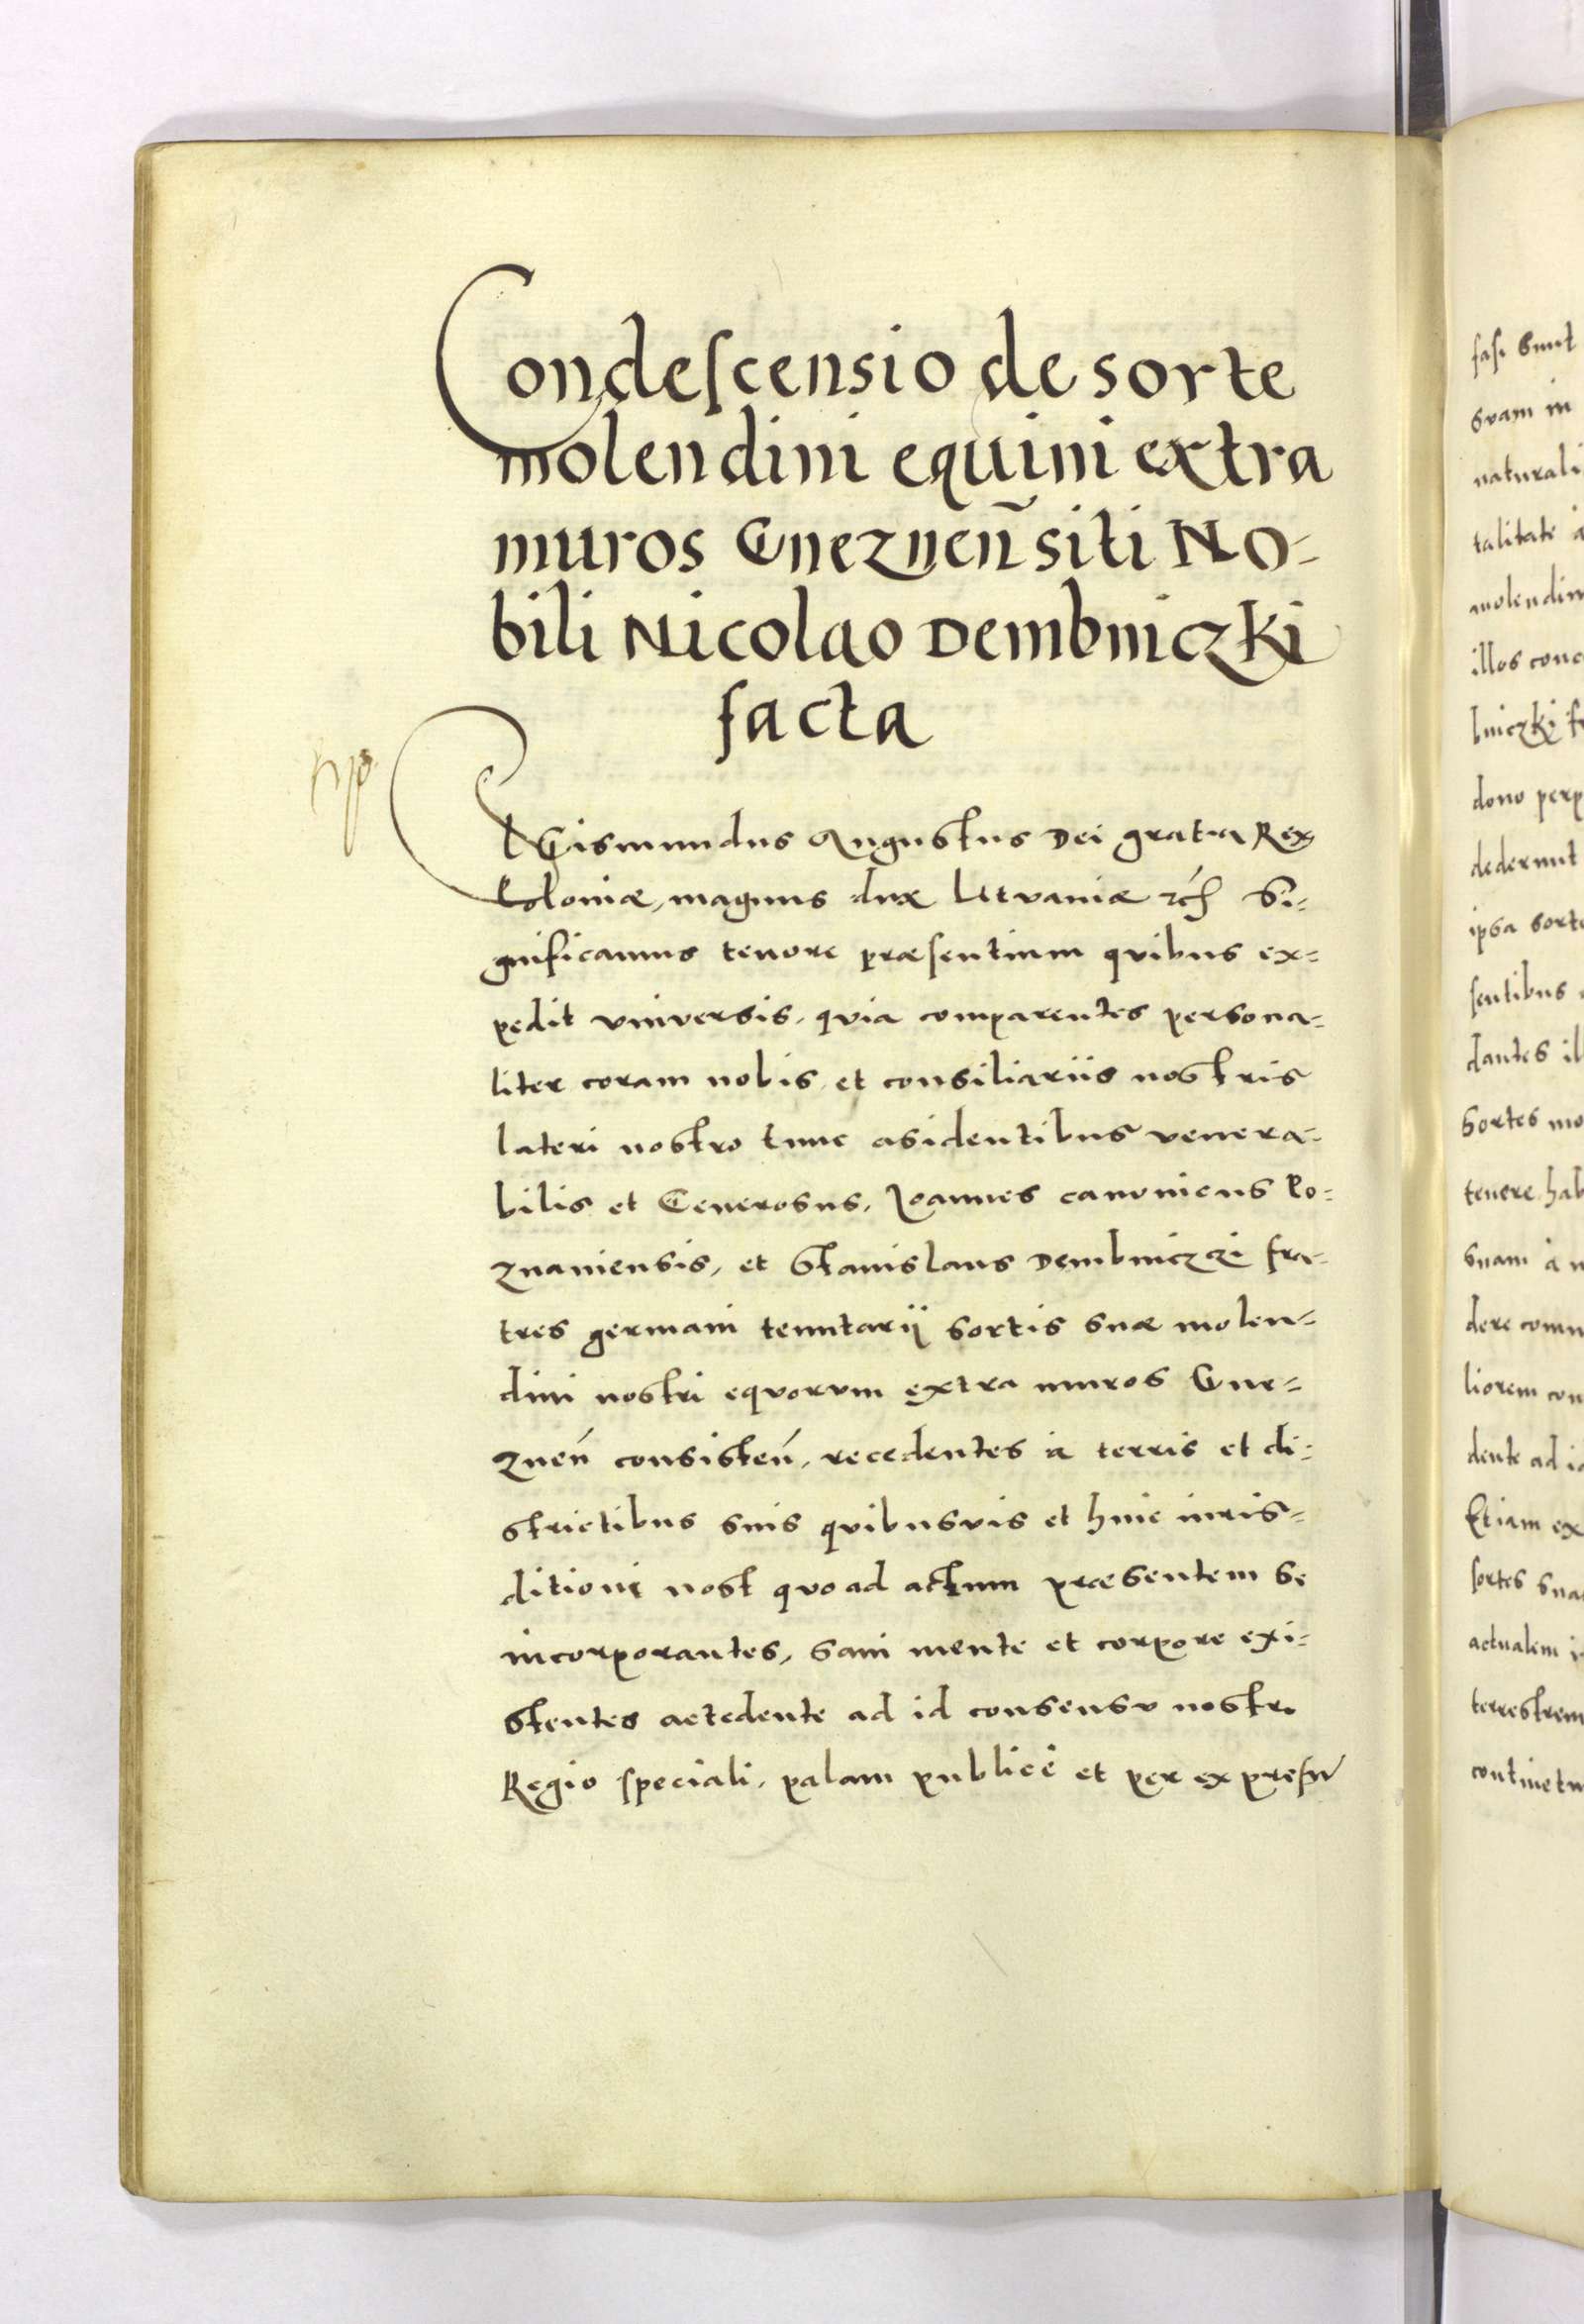 Condescensio de sorte
molendini equini extra
muros Gneznen̄ siti No-
bili Nicolao Dembniczki
facta
Sigismundus Augustus Dei gratia Rex
Poloniæ, magnus dux Lituaniæ Si-
gnificamus tenore præsentium quibus ex-
pedit vniversis, quia comparentes persona-
liter coram nobis et consiliariis nostris
lateri nostro tunc asidentibus venera-
bilis et Generosus, Joannes canonicus Po-
znaniensis, et Stanislaus Dembniczki fra-
tres germani tenutarij sortis suæ molen-
dini nostri equorum extra muros Gne-
znen̄ consisten̄, recedentes à terris et di-
strictibus suis quibusvis et huic iuris-
ditioni nost quo ad actum præsentem se
incorporantes, sani mente et corpore exi-
stentes accedente ad id consensu nostro
Regio speciali, palam publicè et per expresū
fasi sunt
suam in
naturali
talitate
molendin
illos conc
bniczki fr
dono perp
dederunt
ipsa sorte
sentibus
dantes ill
sortes mo
tenere hab
suam à n
dere comu
liorem con
dente ad id
Etiam ex
sortes sua
actualem i
terrestrem
continetu